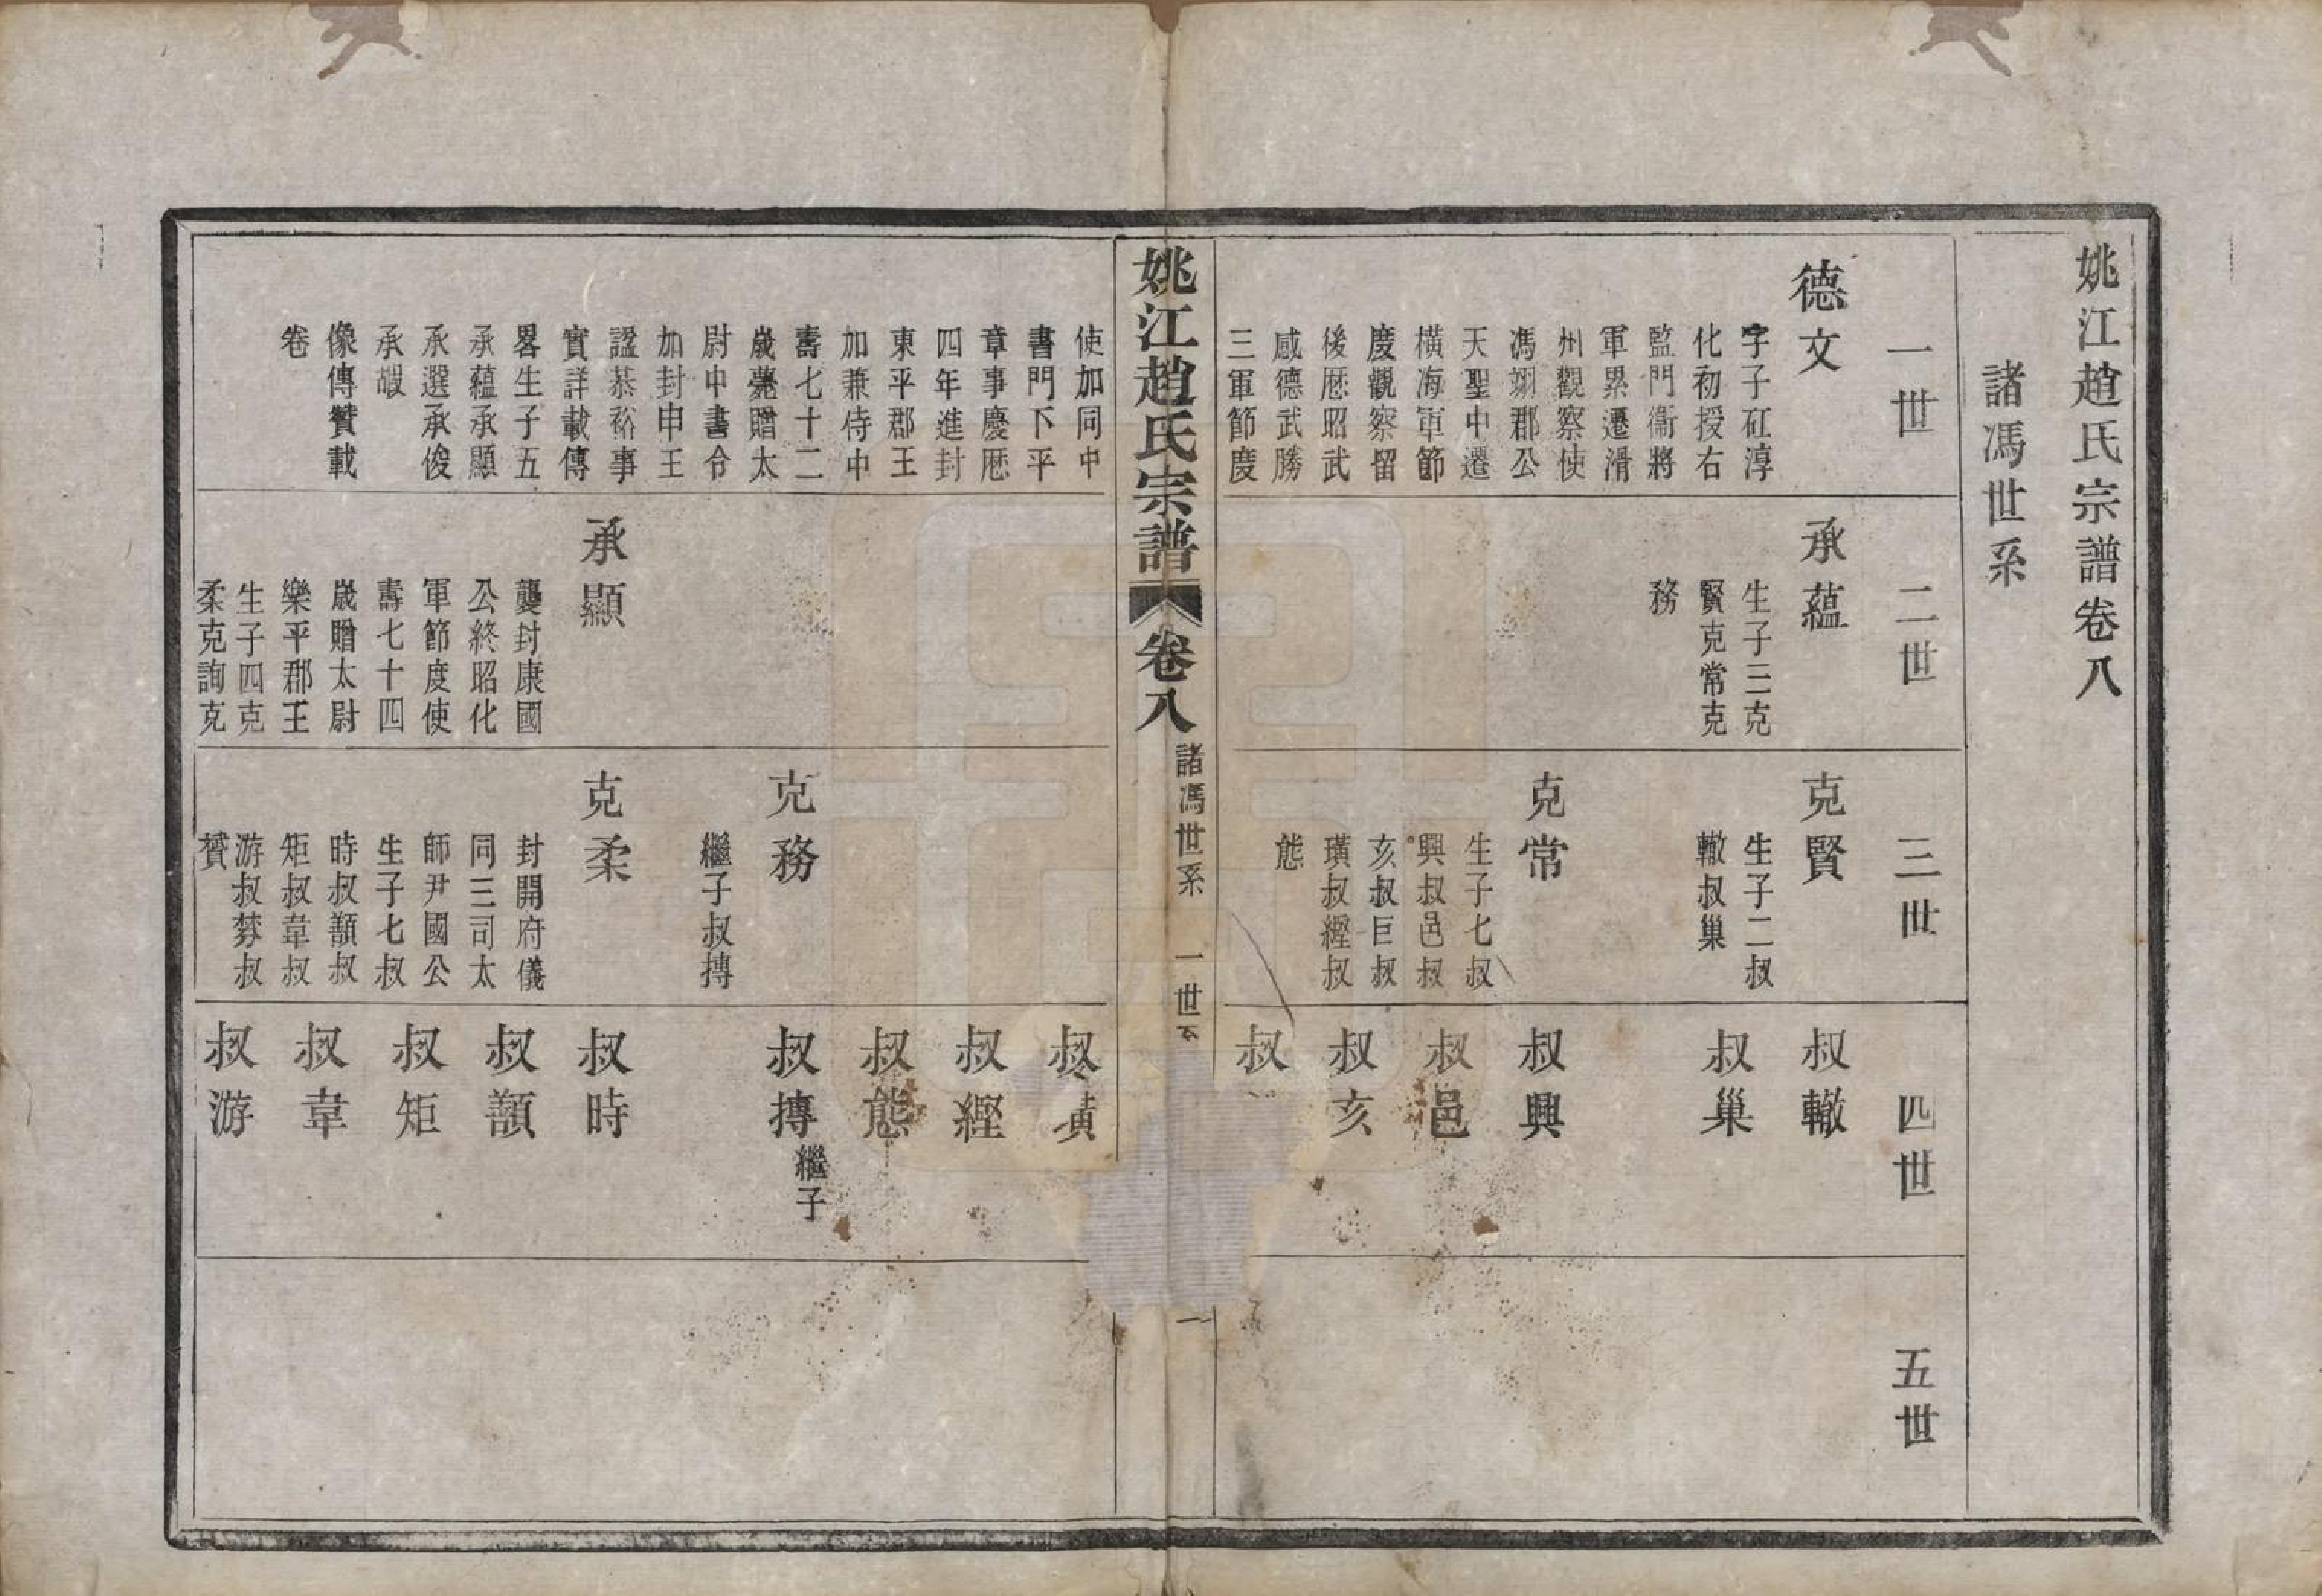 姚江趙氏宗譜卷八
諸馮世系
一世
二世
三世
四世
五世
德文
字子矼淳
化初授右
監門衞將
軍累遷滑
州觀察使
馮翊郡公
天聖中遷
橫海軍節
度觀察留
後厯昭武
感德武勝
三軍節度
承蘊
生子三克
賢克常克
務
克賢
生子二叔
轍叔巢
克常
生子七叔
興叔邑叔
亥叔巨叔
璜叔經叔
態
叔轍
叔巢
叔興
叔邑
叔亥
叔
姚江趙氏宗譜
卷八
諸馮世系
一世至
一
使加同中
書門下平
章事慶厯
四年進封
東平郡王
加兼侍中
壽七十二
歲薨贈太
尉中書令
加封申王
諡恭裕事
實詳載傳
畧生子五
承蘊承顯
承選承俊
承嘏
像傳贊載
卷
承顯
襲封康國
公終昭化
軍節度使
壽七十四
歲贈太尉
樂平郡王
生子四克
柔克詢克
克務
繼子叔摶
克柔
封開府儀
同三司太
師尹國公
生子七叔
時叔纇叔
矩叔韋叔
游叔棼叔
贇
叔璜
叔經
叔態
叔摶
繼子
叔時
叔纇
叔矩
叔韋
叔游